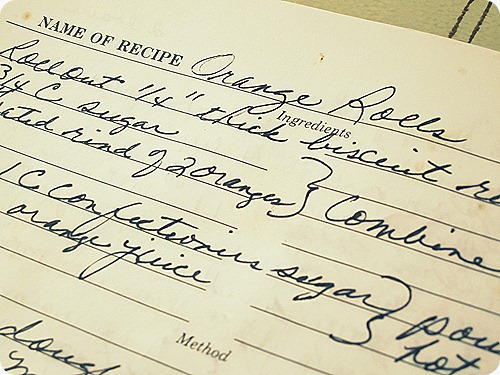 NAME OF RECIPE Orange Rolls
Ingredients
Roll out 1/4" thick biscuit re
3/4 C. sugar
ated rind of 2 oranges } Combine
1 C. confectioners sugar } pou
orange juice } hot
Method
dough